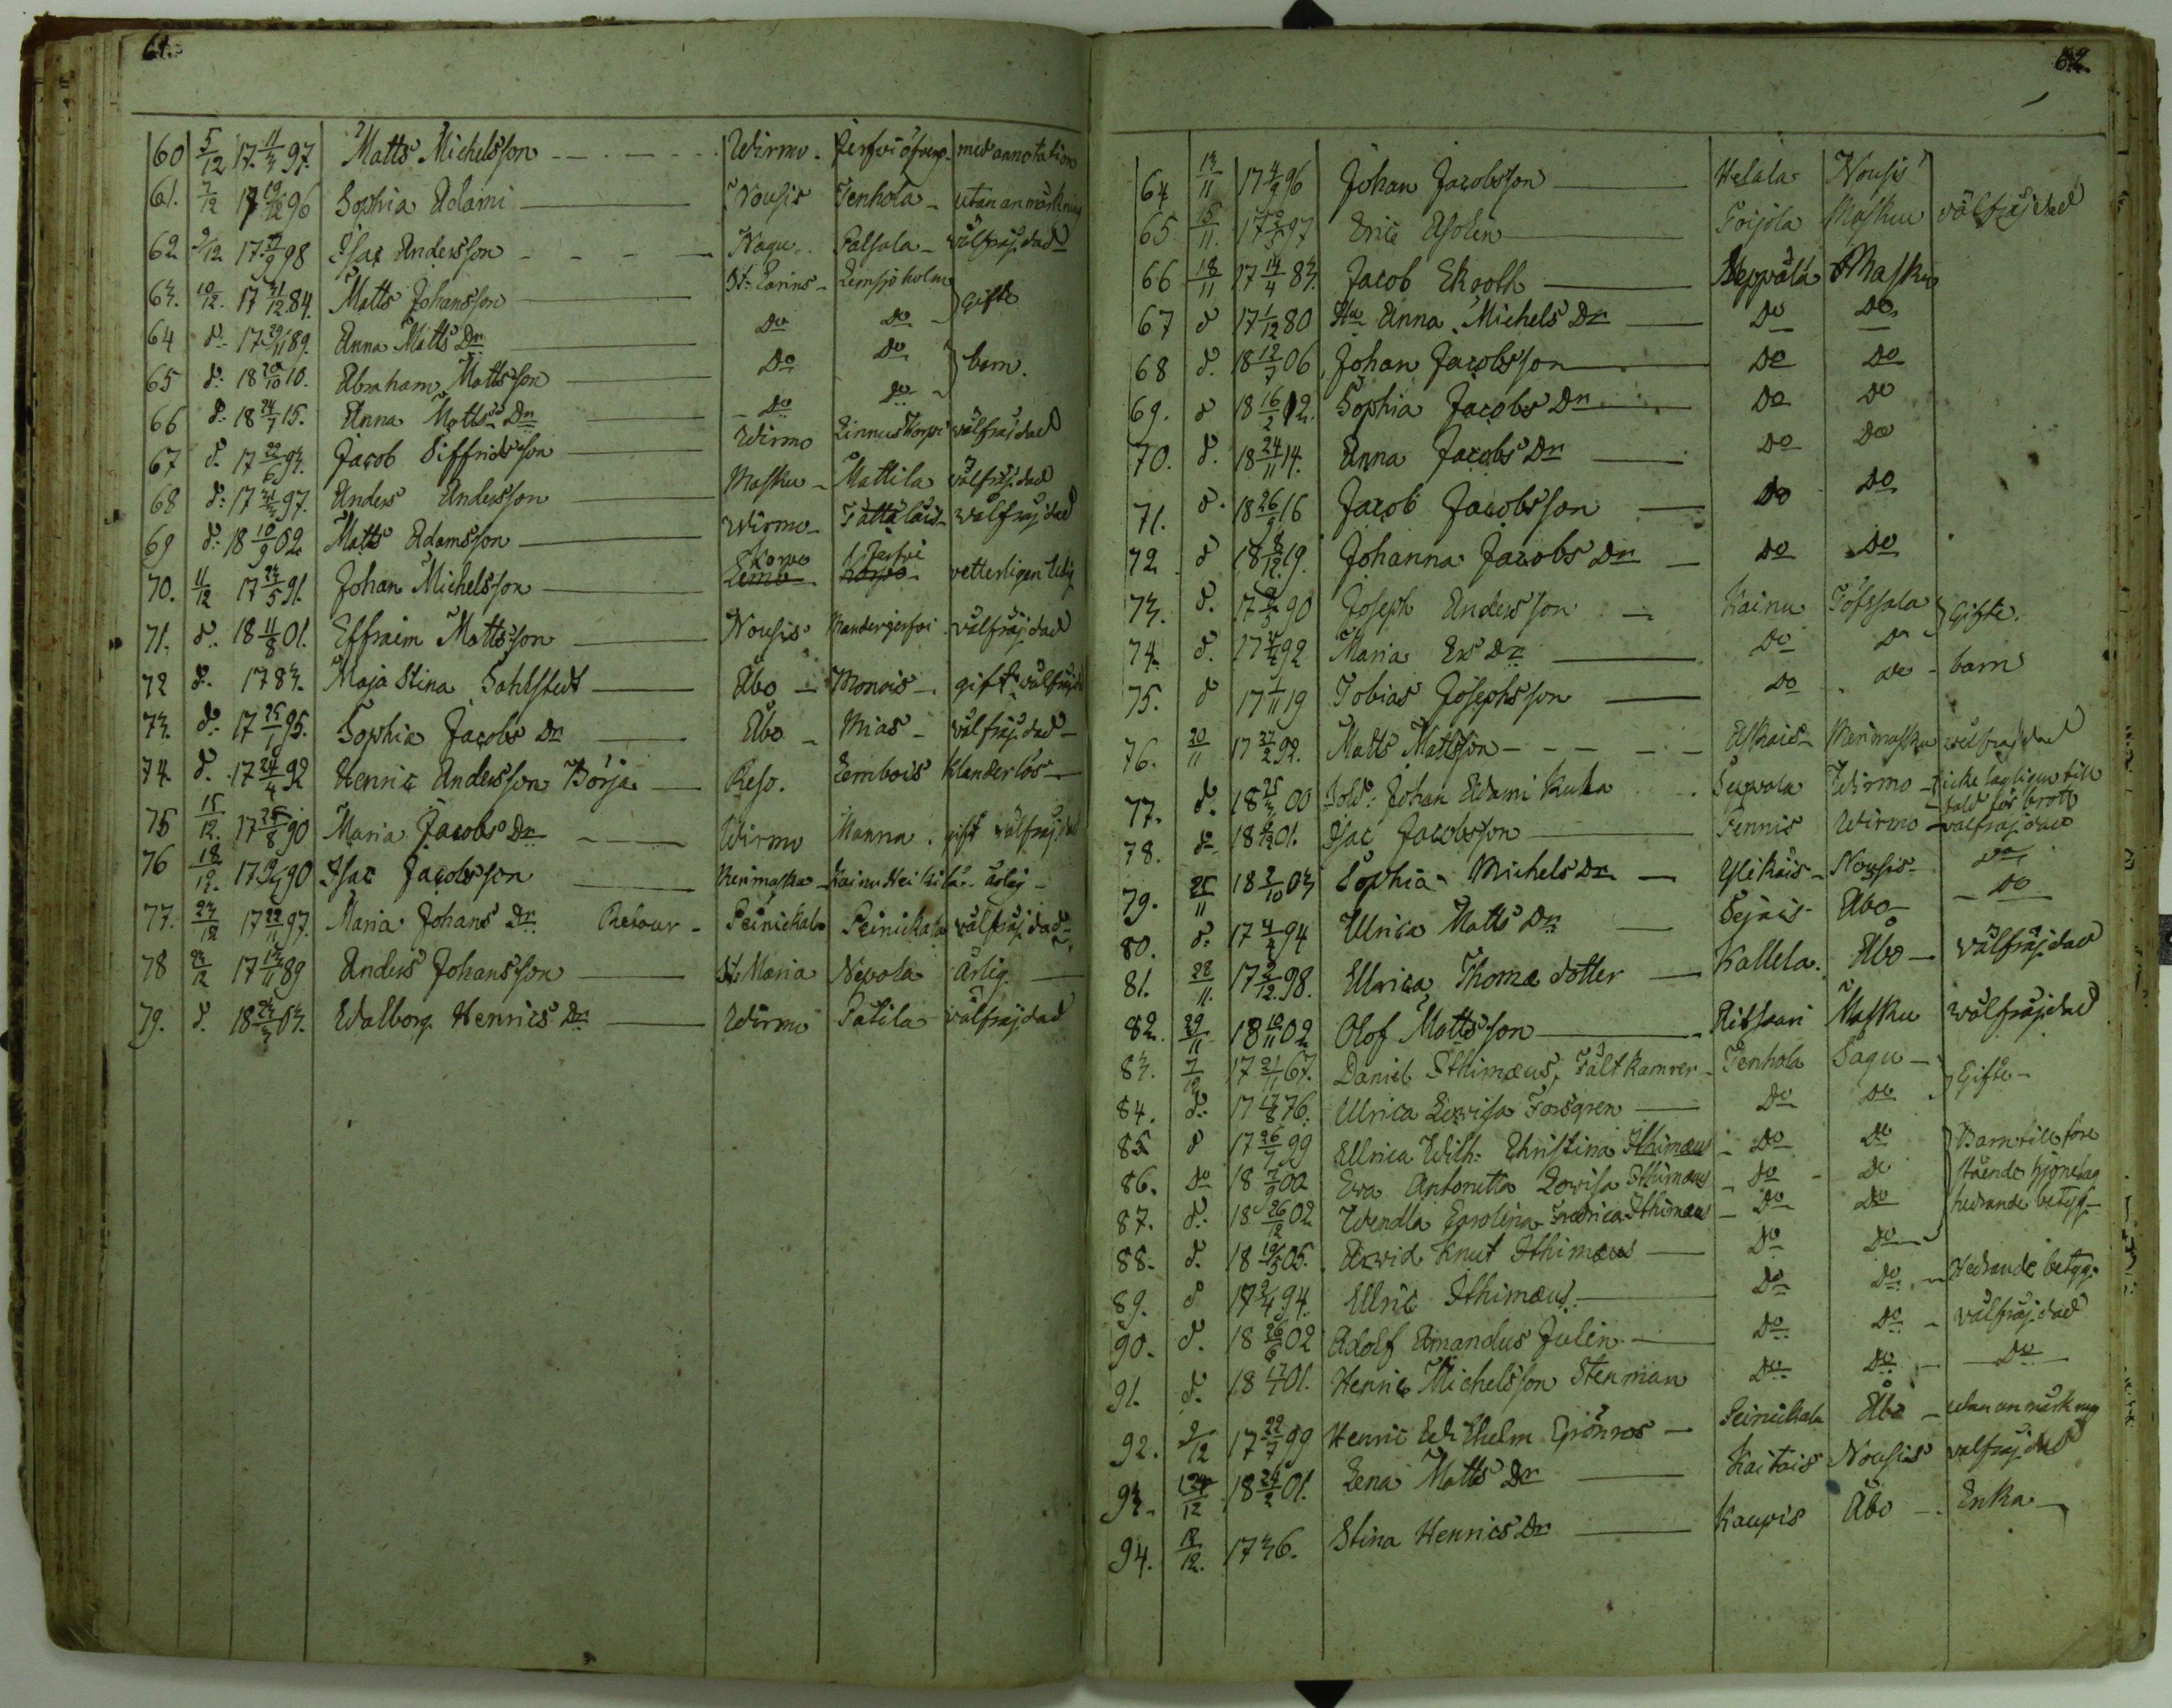 61.
60 5/12 17 11/3 97. Matts Michelsson Wirmo. med annotation
61. 7/12 17 19/12 96 Sophia Adami Nousis Tenhola utan anmärkning
62 9/12 17 /9 98 Isac Andersson Nagu Palsala välfräjdad
63. 10/12. 17 21/12 84. Matts Johansson St. Karins Lemsjöholm Gifte
64 d. 17 29/11 89. Anna Matts Dr Do Do
65 d: 18 20/10 10. Abraham Mattsson Do Do barn.
66 d: 18 24/7 15. Anna Matts Dr Do Do
67 d. 17 22/6 93. Jacob Siffridsson Wirmo Linnus Korpi välfräjdad
68 d: 17 97. Anders Andersson Masku Mattila välfräjdad
69 d: 18 10/9 02 Matts Adamsson Wirmo välfräjdad
70. 11/12 17 23/5 91. Johan Michelsson Korvo Lemb Korvo Jerfvi vetterligen ledig
71. d. 18 11/8 01. Effraim Mattsson Nousis Kanderjerfvi välfräjdad
72 d. 1783. Maja Stina Sahlstedt Åbo Monois gift välfräjdad
73. d. 17 25/1 95. Sophia Jacobs Dr Åbo Mias välfräjdad
74. d. 17 24/4 92 Henric Andersson Börja Reso. Lembois Klanderlös
75 15/12. 17 25/8 90 Maria Jacobs Dr Wirmo Manna. gift välfräjdad
76 18/12. 17 90 Isac Jacobsson Merimasku Kainu Heikilä ärlig
77. 23/12 17 22/11 97. Maria Johans Dr Retour Peinickala Peinickala välfräjdad
78 23/12 17 13/11 89 Anders Johansson St. Maria Nepola Ärlig.
79. d. 18 23/3 03. Walborg Henrics Dr Wirmo Patila välfräjdad
62.
64 13/11 17 4/9 96 Johan Jacobsson Helala Nousis
65 15/11. 17 97 Eric Asolin Poijola Masku välfräjdad
66 18/11 17 14/4 83. Jacob Ekroth Seppälä Masku
67 d 17 1/12 80 Hu Anna Michels Dr Do Do
68 d. 18 12/7 06 Johan Jacobsson Do Do
69. d 18 16/2 12. Sophia Jacobs Dr Do Do
70. d. 18 24/11 14. Anna Jacobs Dr Do Do
71. d. 18 26/9 16 Jacob Jacobsson Do Do
72 d 18 8/12 19. Johanna Jacobs Dr Do Do
73. d. 17 90 Joseph Andersson Kainu Töfsala Gifte.
74. d. 17 92 Maria Ers Dr Do Do
75. d 17 1/11 19 Tobias Josephsson Do Do barn
76. 20/11 17 27/2 92. Matts Mattsson Askais Merimasku välfräjdad
77. d. 18 25/3 00 Sold: Johan Adami Kuha Supvala Wirmo icke lagligen till
tald för brott
78. d. 18 01. Isac Jacobsson Tennis Wirmo välfräjdad
79. 25/11 18 2/10 03 Sophia Michels Dr Ylikäis Nousis Do
80. d. 17 4/4 94 Ulrica Matts Dr Sejais Åbo Do
81. 28/11. 17 2/12. 98. Ulrica Thomæ dotter Kallela. Åbo välfräjdad
82. 29/11 18 10/11 02 Olof Mattsson Ritsaari Masku välfräjdad
83. 7/12 17 21/1 67. Daniel Ithimæus, Fältkamrer Tenhola Sagu Gifte
84. d. 17 17/8 76. Ulrica Lovisa Forsgren Do Do
85 d 17 26/7 99 Ulrica Wilh: Christina Ithimæus Do Do Barn till före
86. Do 18 7/9 00 Eva Antonetta Lovisa Ithimæus Do Do stående hjonelag
87. d: 18 26/12 02 Wendla Carolina Fredrica Ithimæus Do Do hedrande betyg.
88. d. 18 19/5 05. Arvid Knut Ithimæus Do Do
89. d 17 2/4 94. Ulric Ithimæus. Do Do Hedrande betyg.
90. d. 18 26/6 02 Adolf Amandus Julin Do Do välfräjdad
91. d. 18 17/1 01. Henric Michelsson Stenman Do Do Do
92. 9/12 17 22/7 99 Henric Wilhelm Grönros Peinickala Åbo utan anmärkning
93. 12/12 18 24/2 01. Lena Matts Dr Kaitais Nousis välfräjdad
94. 12/12. 1736. Stina Henrics Dr Kaupis Åbo Enka